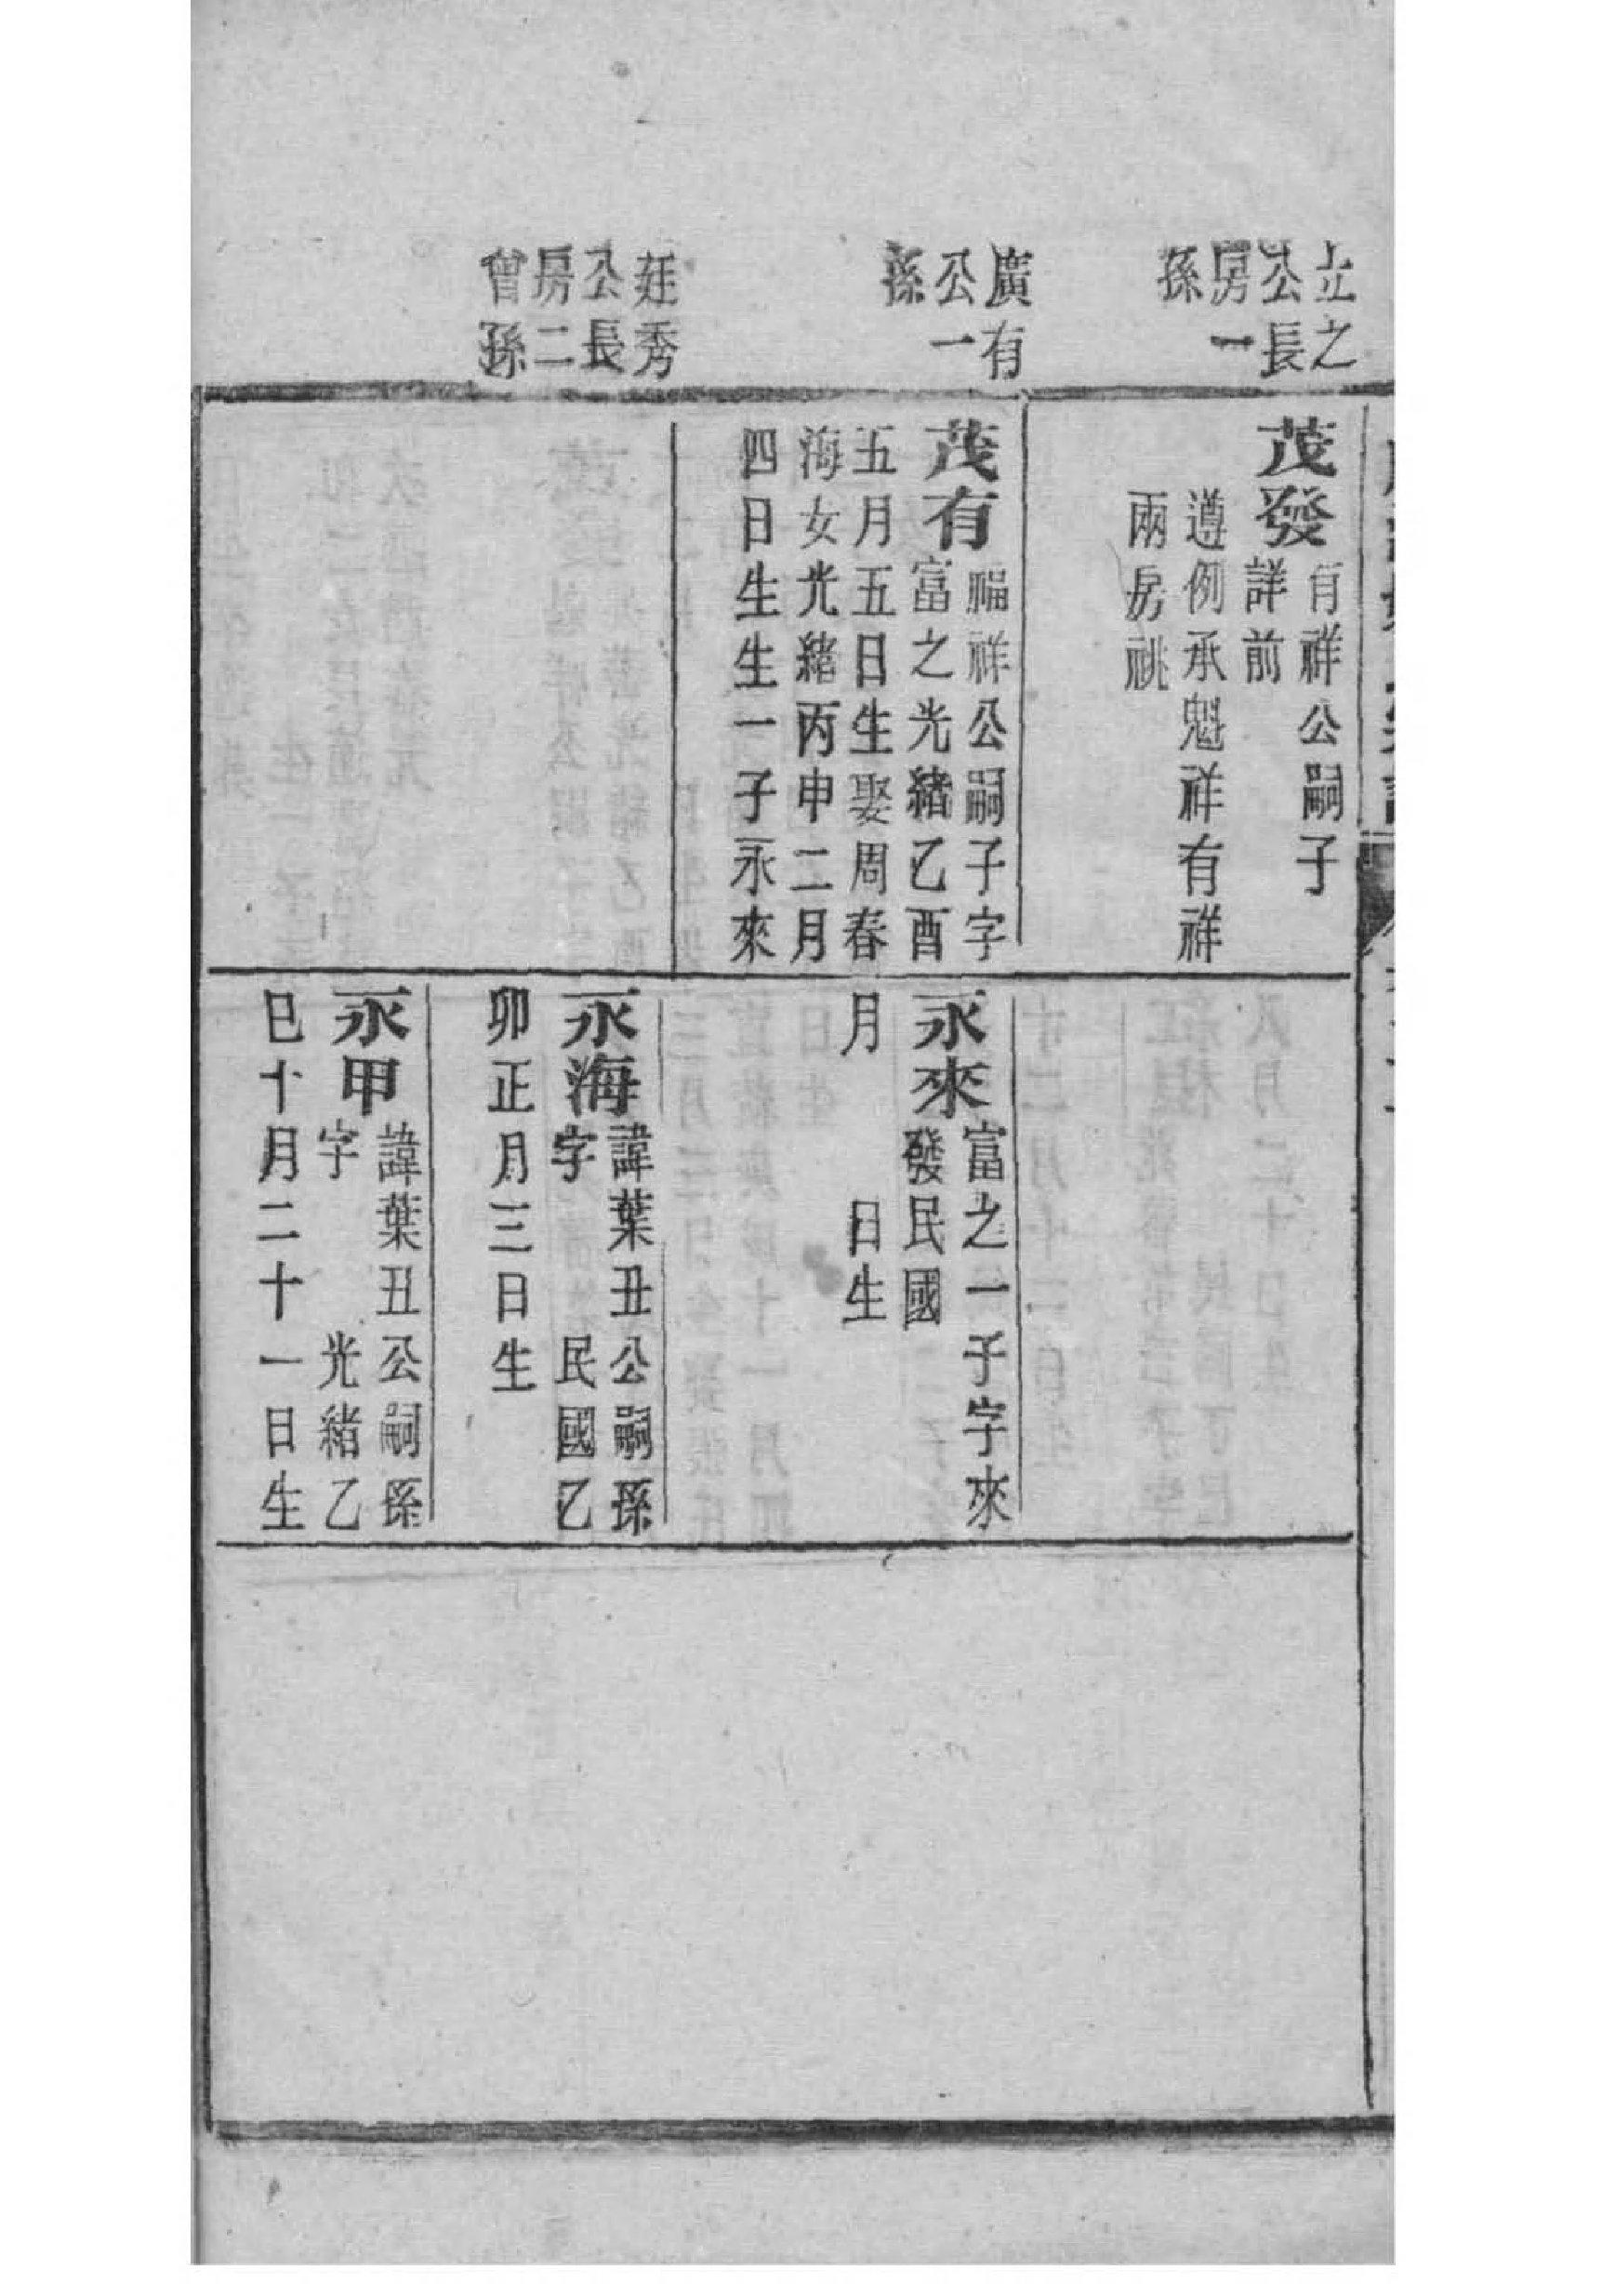 立之
公長
房一
孫
廣有
公一
孫
廷秀
公長
房二
曾孫
茂發
有祥公嗣子
詳前
遵例承魁祥有祥
兩房祧
茂有
福祥公嗣子字
富之光緒乙酉
五月五日生娶周春
海女光緒丙申二月
四日生生一子永來
永來
富之一子字來
發民國
月 日生
永海
諱葉丑公嗣孫
字 民國乙
卯正月三日生
永甲
諱葉丑公嗣孫
字 光緒乙
巳十月二十一日生